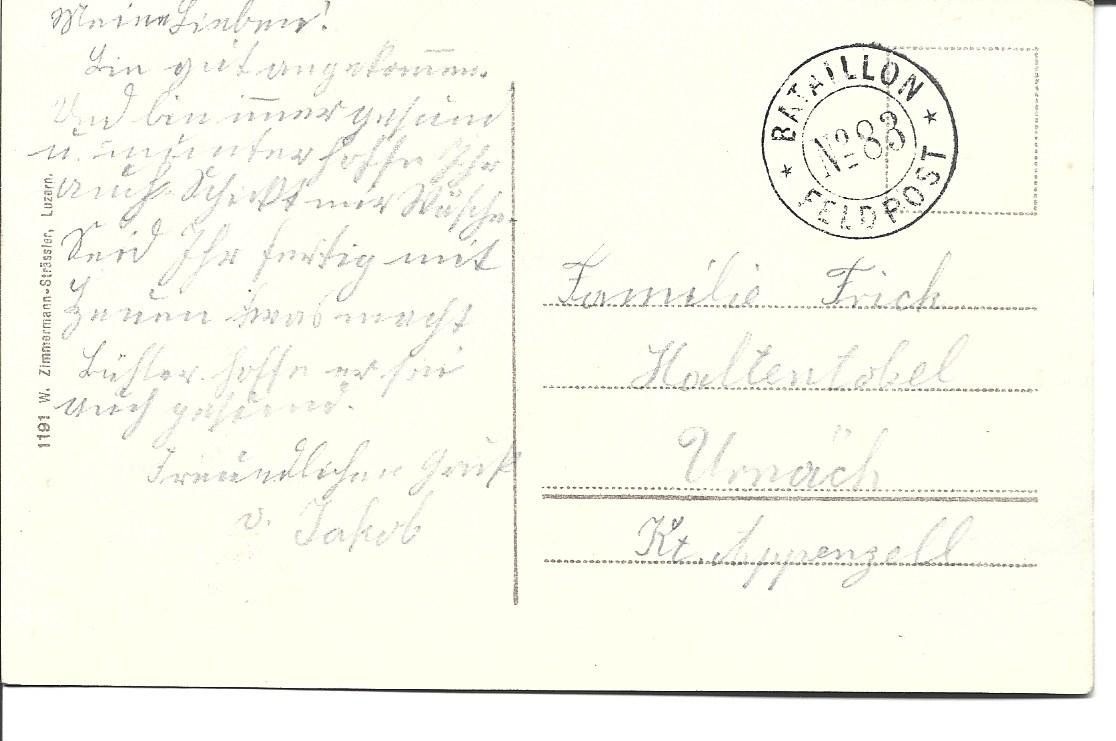 Meine Lieben!
Bin gut angekommen.
Und bin immer gesund
u. munter hoffe Ihr
auch. Schikt mir Wäsche.
Seid Ihr fertig mit
Heuen was macht
hoffe er sei
auch gesund.
Freundlichen Gruß
v. Jakob
1191 W. Zimmermann-Strässler, Luzern.
* BATAILLON *
No 83
FELDPOST
Familie Frick
Haltentobel
Urnäch
Kt. Appenzell